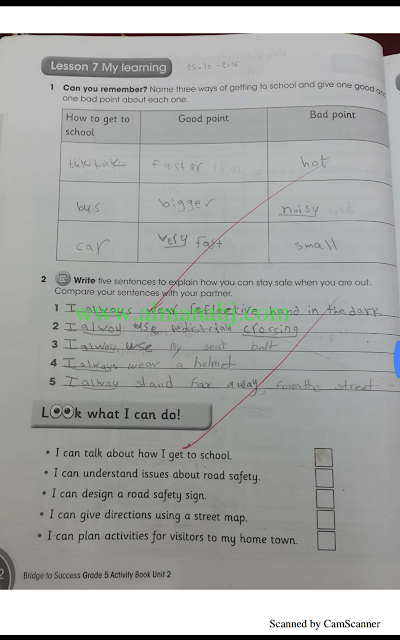 Lesson 7 My learning
25-10-2016
1 Can you remember? Name three ways of getting to school and give one good and
one bad point about each one.
How to get to school
Good point
Bad point
tuktuk
Faster
hot
bus
bigger
noisy
car
very fast
small
2 Write five sentences to explain how you can stay safe when you are out.
Compare your sentences with your partner.
1 I always wear reflective band in the dark
2 I alway use pedistrian crossing
3 I always use my seat belt
4 I always wear a helmet
5 I alway stand far away from the street
Look what I can do!
• I can talk about how I get to school.
• I can understand issues about road safety.
• I can design a road safety sign.
• I can give directions using a street map.
• I can plan activities for visitors to my home town.
2 Bridge to Success Grade 5 Activity Book Unit 2
Scanned by CamScanner